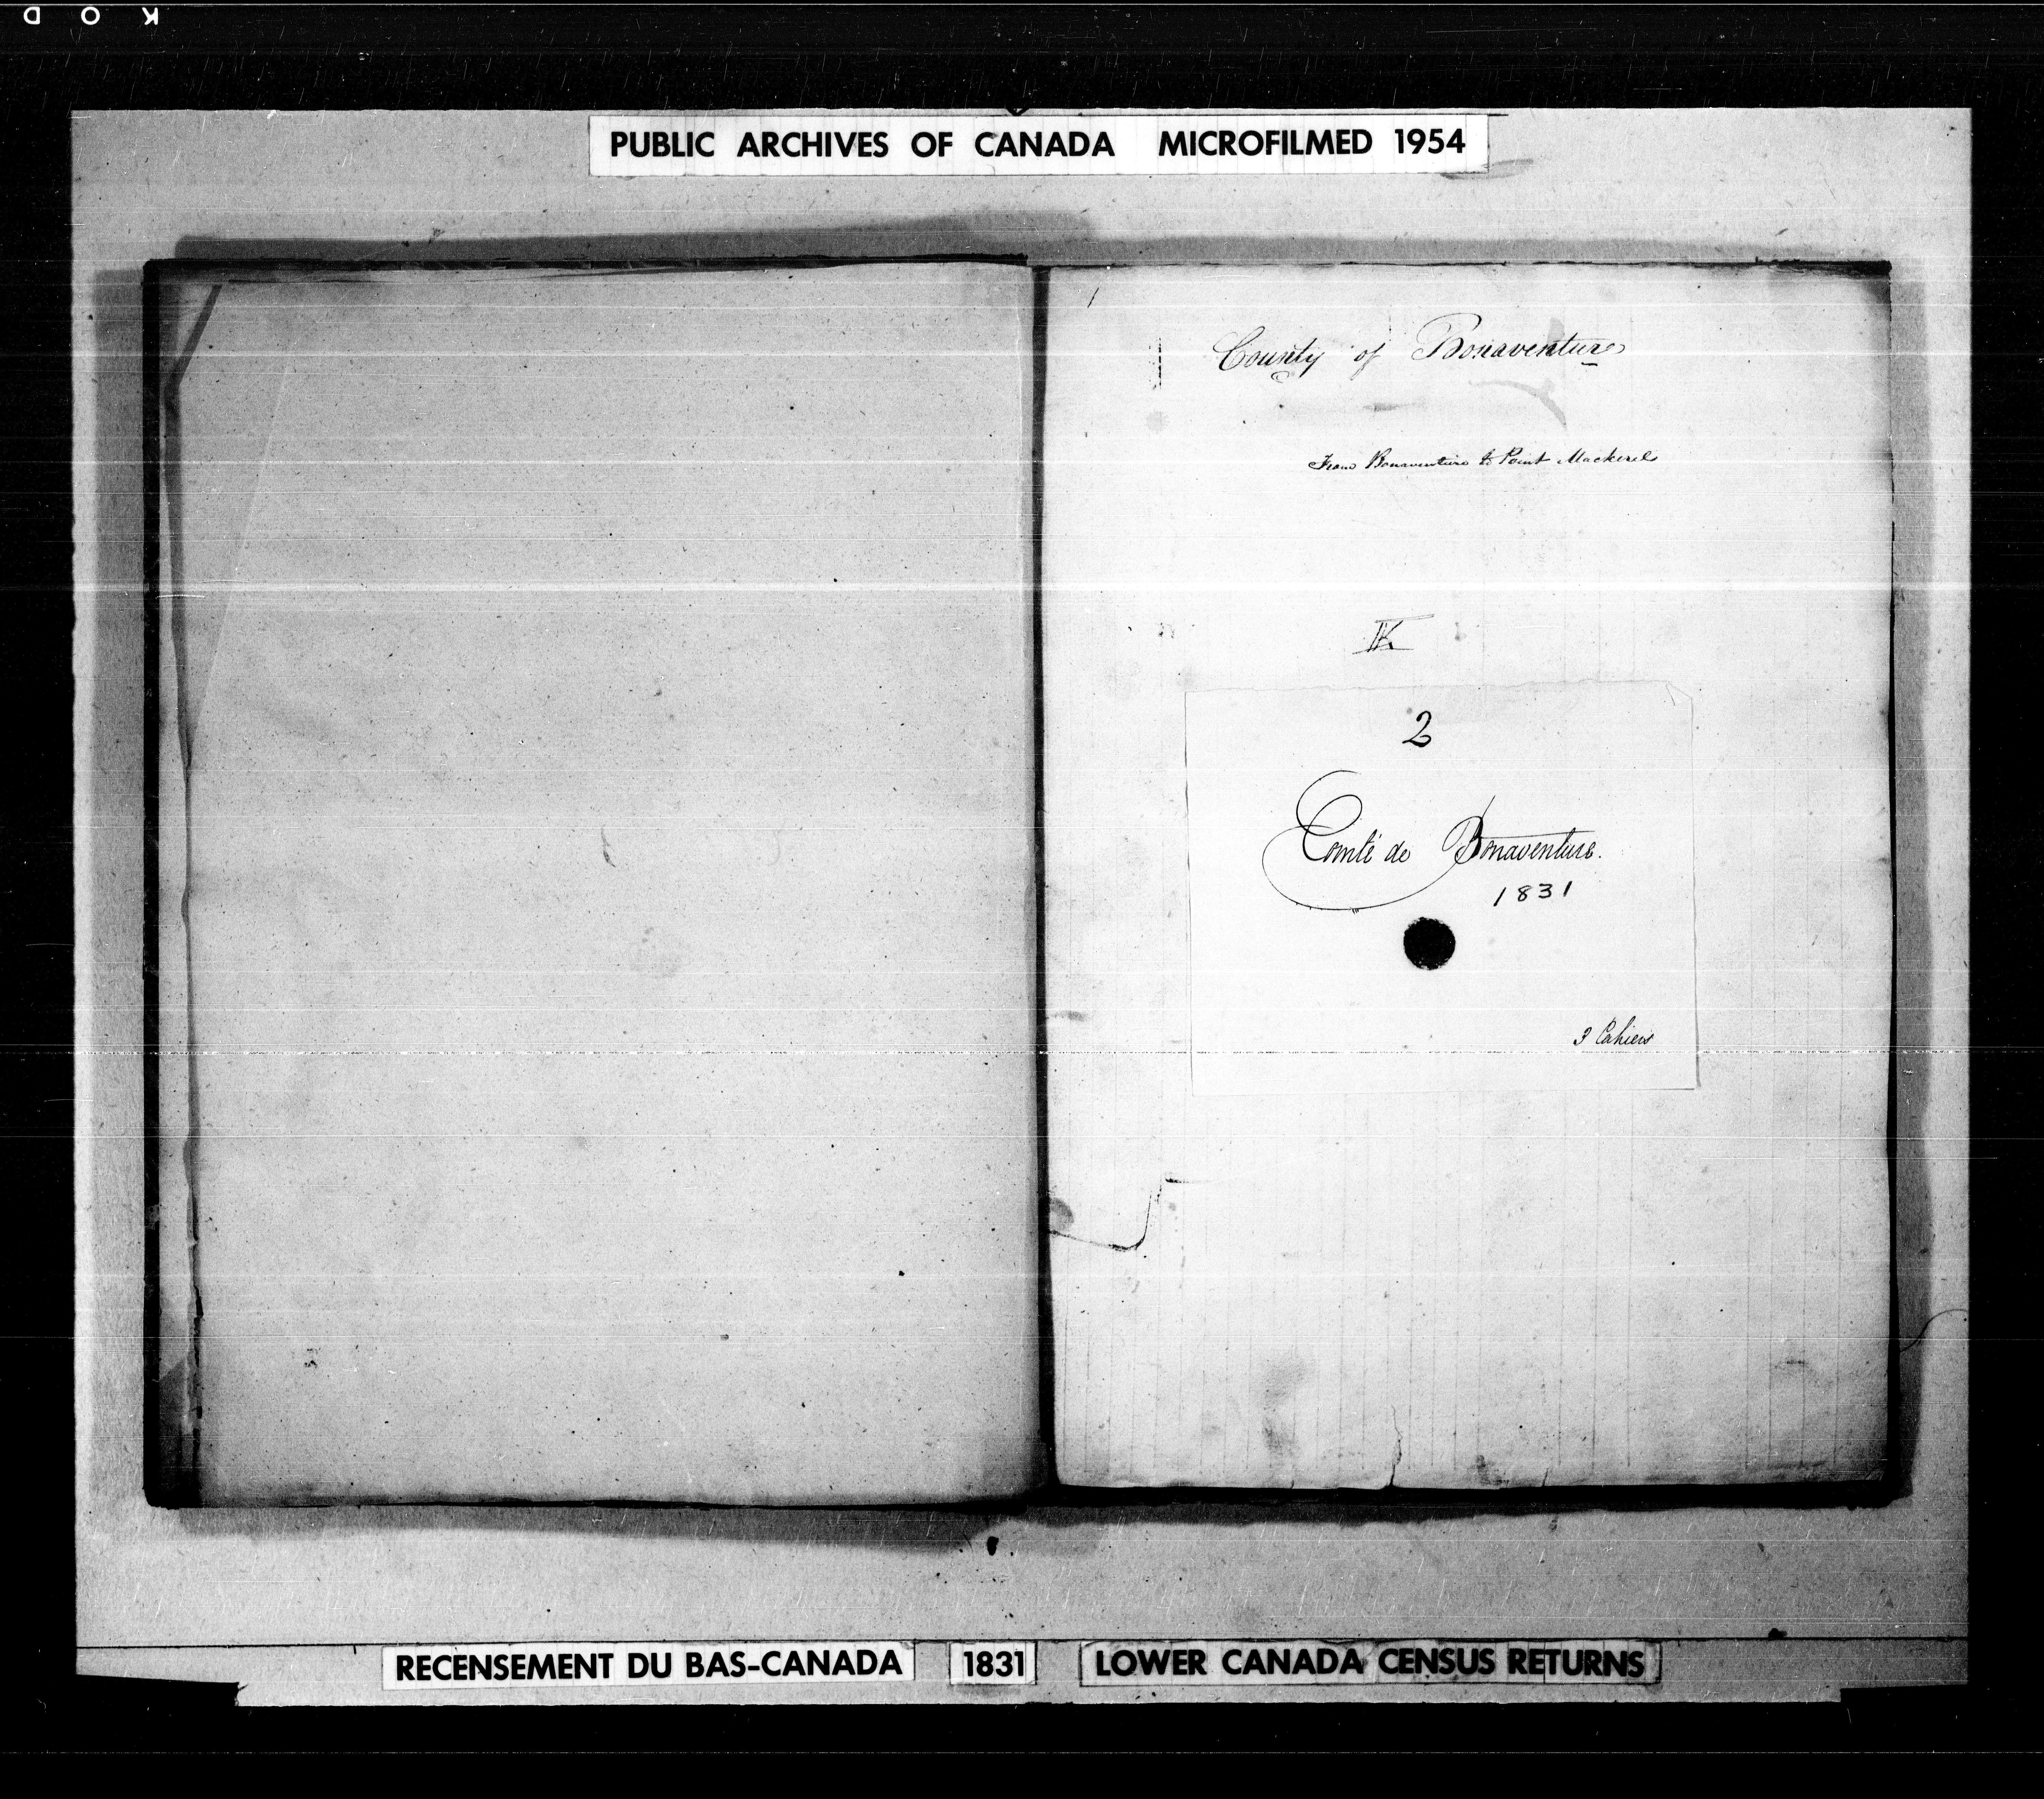 PUBLIC ARCHIVES OF CANADA MICROFILMED 1954
County of Bonaventure
From Bonaventure to Point Mackerel
2
Comté de Bonaventure.
1831
3 Cahiers
RECENSEMENT DU BAS-CANADA 1831 LOWER CANADA CENSUS RETURNS